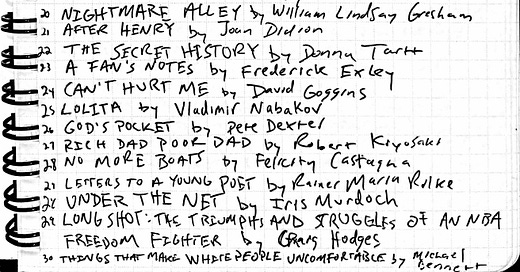 20 NIGHTMARE ALLEY by William Lindsay Gresham
21 AFTER HENRY by Joan Didion
22 THE SECRET HISTORY by Donna Tartt
23 A FAN'S NOTES by Frederick Exley
24 CAN'T HURT ME by David Goggins
25 LOLITA by Vladimir Nabakov
26 GOD'S POCKET by Pete Dexter
27 RICH DAD POOR DAD by Robert Kiyosaki
28 NO MORE BOATS by Felicity Castagna
27 LETTERS TO A YOUNG POET by Rainer Maria Rilke
28 UNDER THE NET by Iris Murdoch
29 LONG SHOT: THE TRIUMPHS AND STRUGGLES OF AN NBA
FREEDOM FIGHTER by Craig Hodges
30 THINGS THAT MAKE WHITE PEOPLE UNCOMFORTABLE by Michael
Bennett